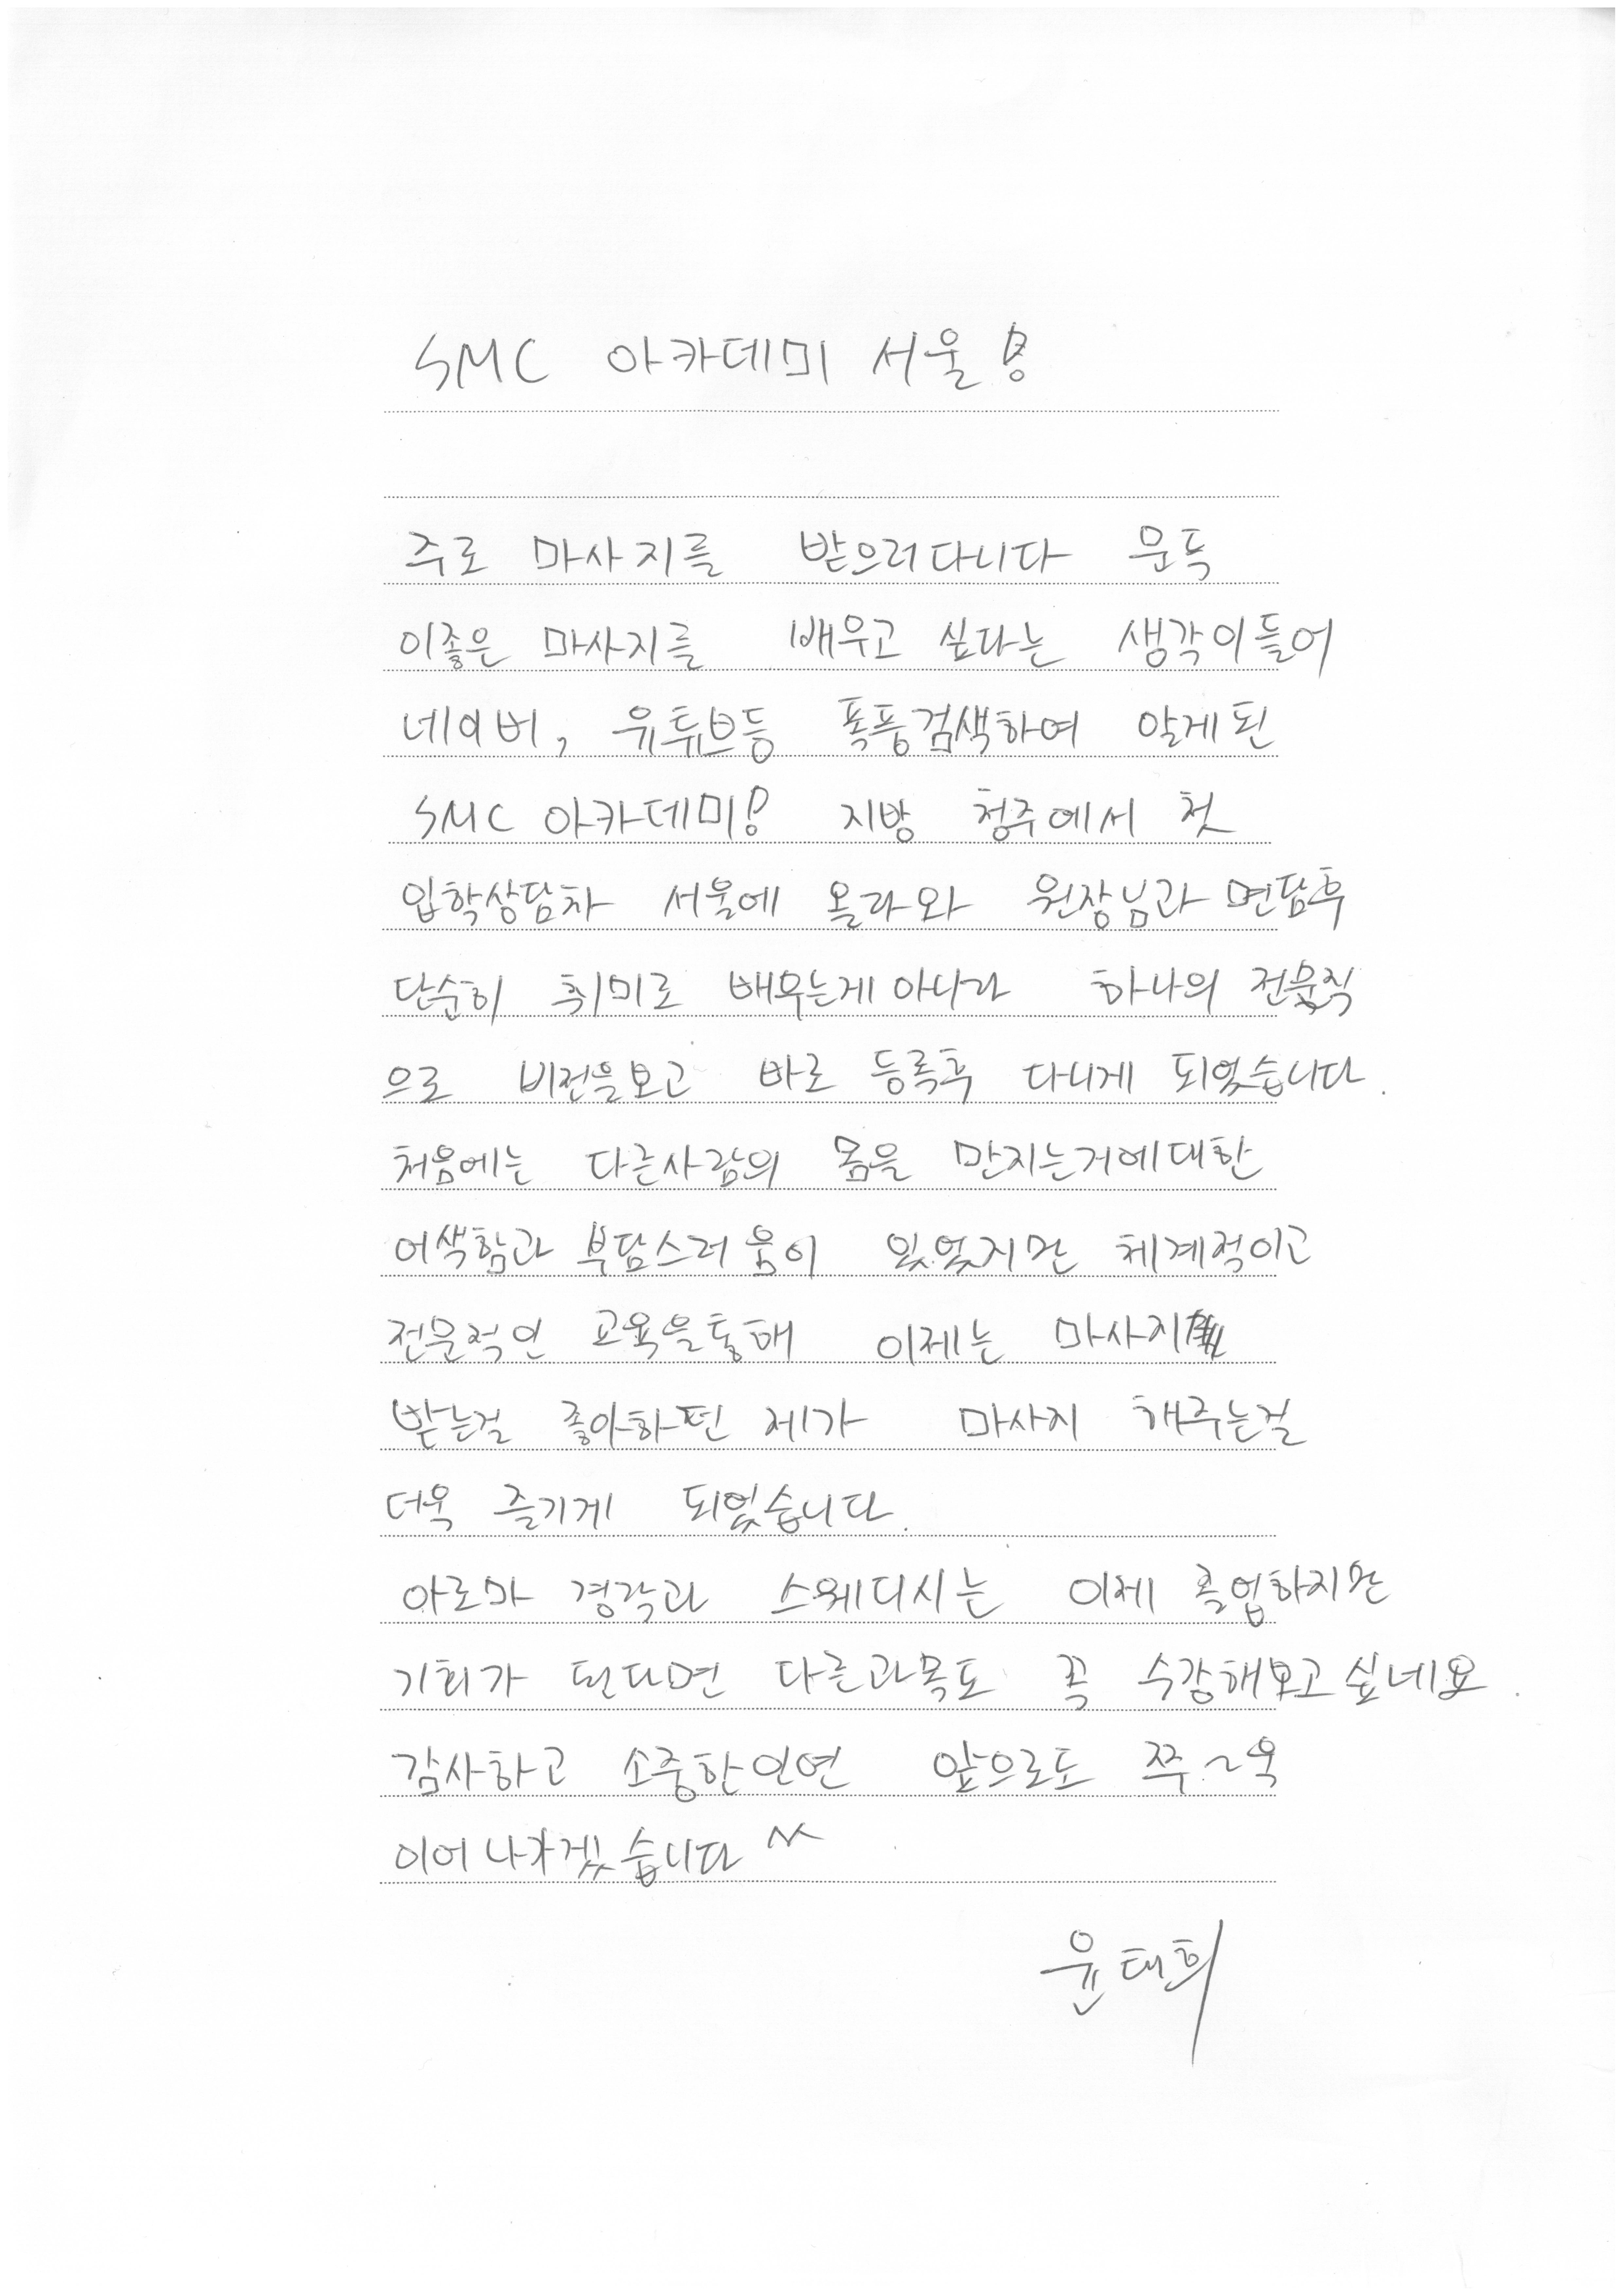 SMC 아카데미 서울!
주로 마사지를 받으러다니다 문득
이좋은 마사지를 배우고 싶다는 생각이들어
네이버, 유튜브등 폭풍검색하여 알게된
SMC 아카데미! 지방 청주에서 첫
입학상담차 서울에 올라와 원장님과 면담후
단순히 취미로 배우는게아니라 하나의 전문직
으로 비전을보고 바로 등록후 다니게 되었습니다.
처음에는 다른사람의 몸을 만지는거에대한
어색함과 부담스러움이 있었지만 체계적이고
전문적인 교육을통해 이제는 마사지
받는걸 좋아하던 제가 마사지 해주는걸
더욱 즐기게 되었습니다.
아로마 경락과 스웨디시는 이제 졸업하지만
기회가 된다면 다른과목도 꼭 수강해보고싶네요.
감사하고 소중한인연 앞으로도 쭈~욱
이어나가겠습니다 ^^
윤태희